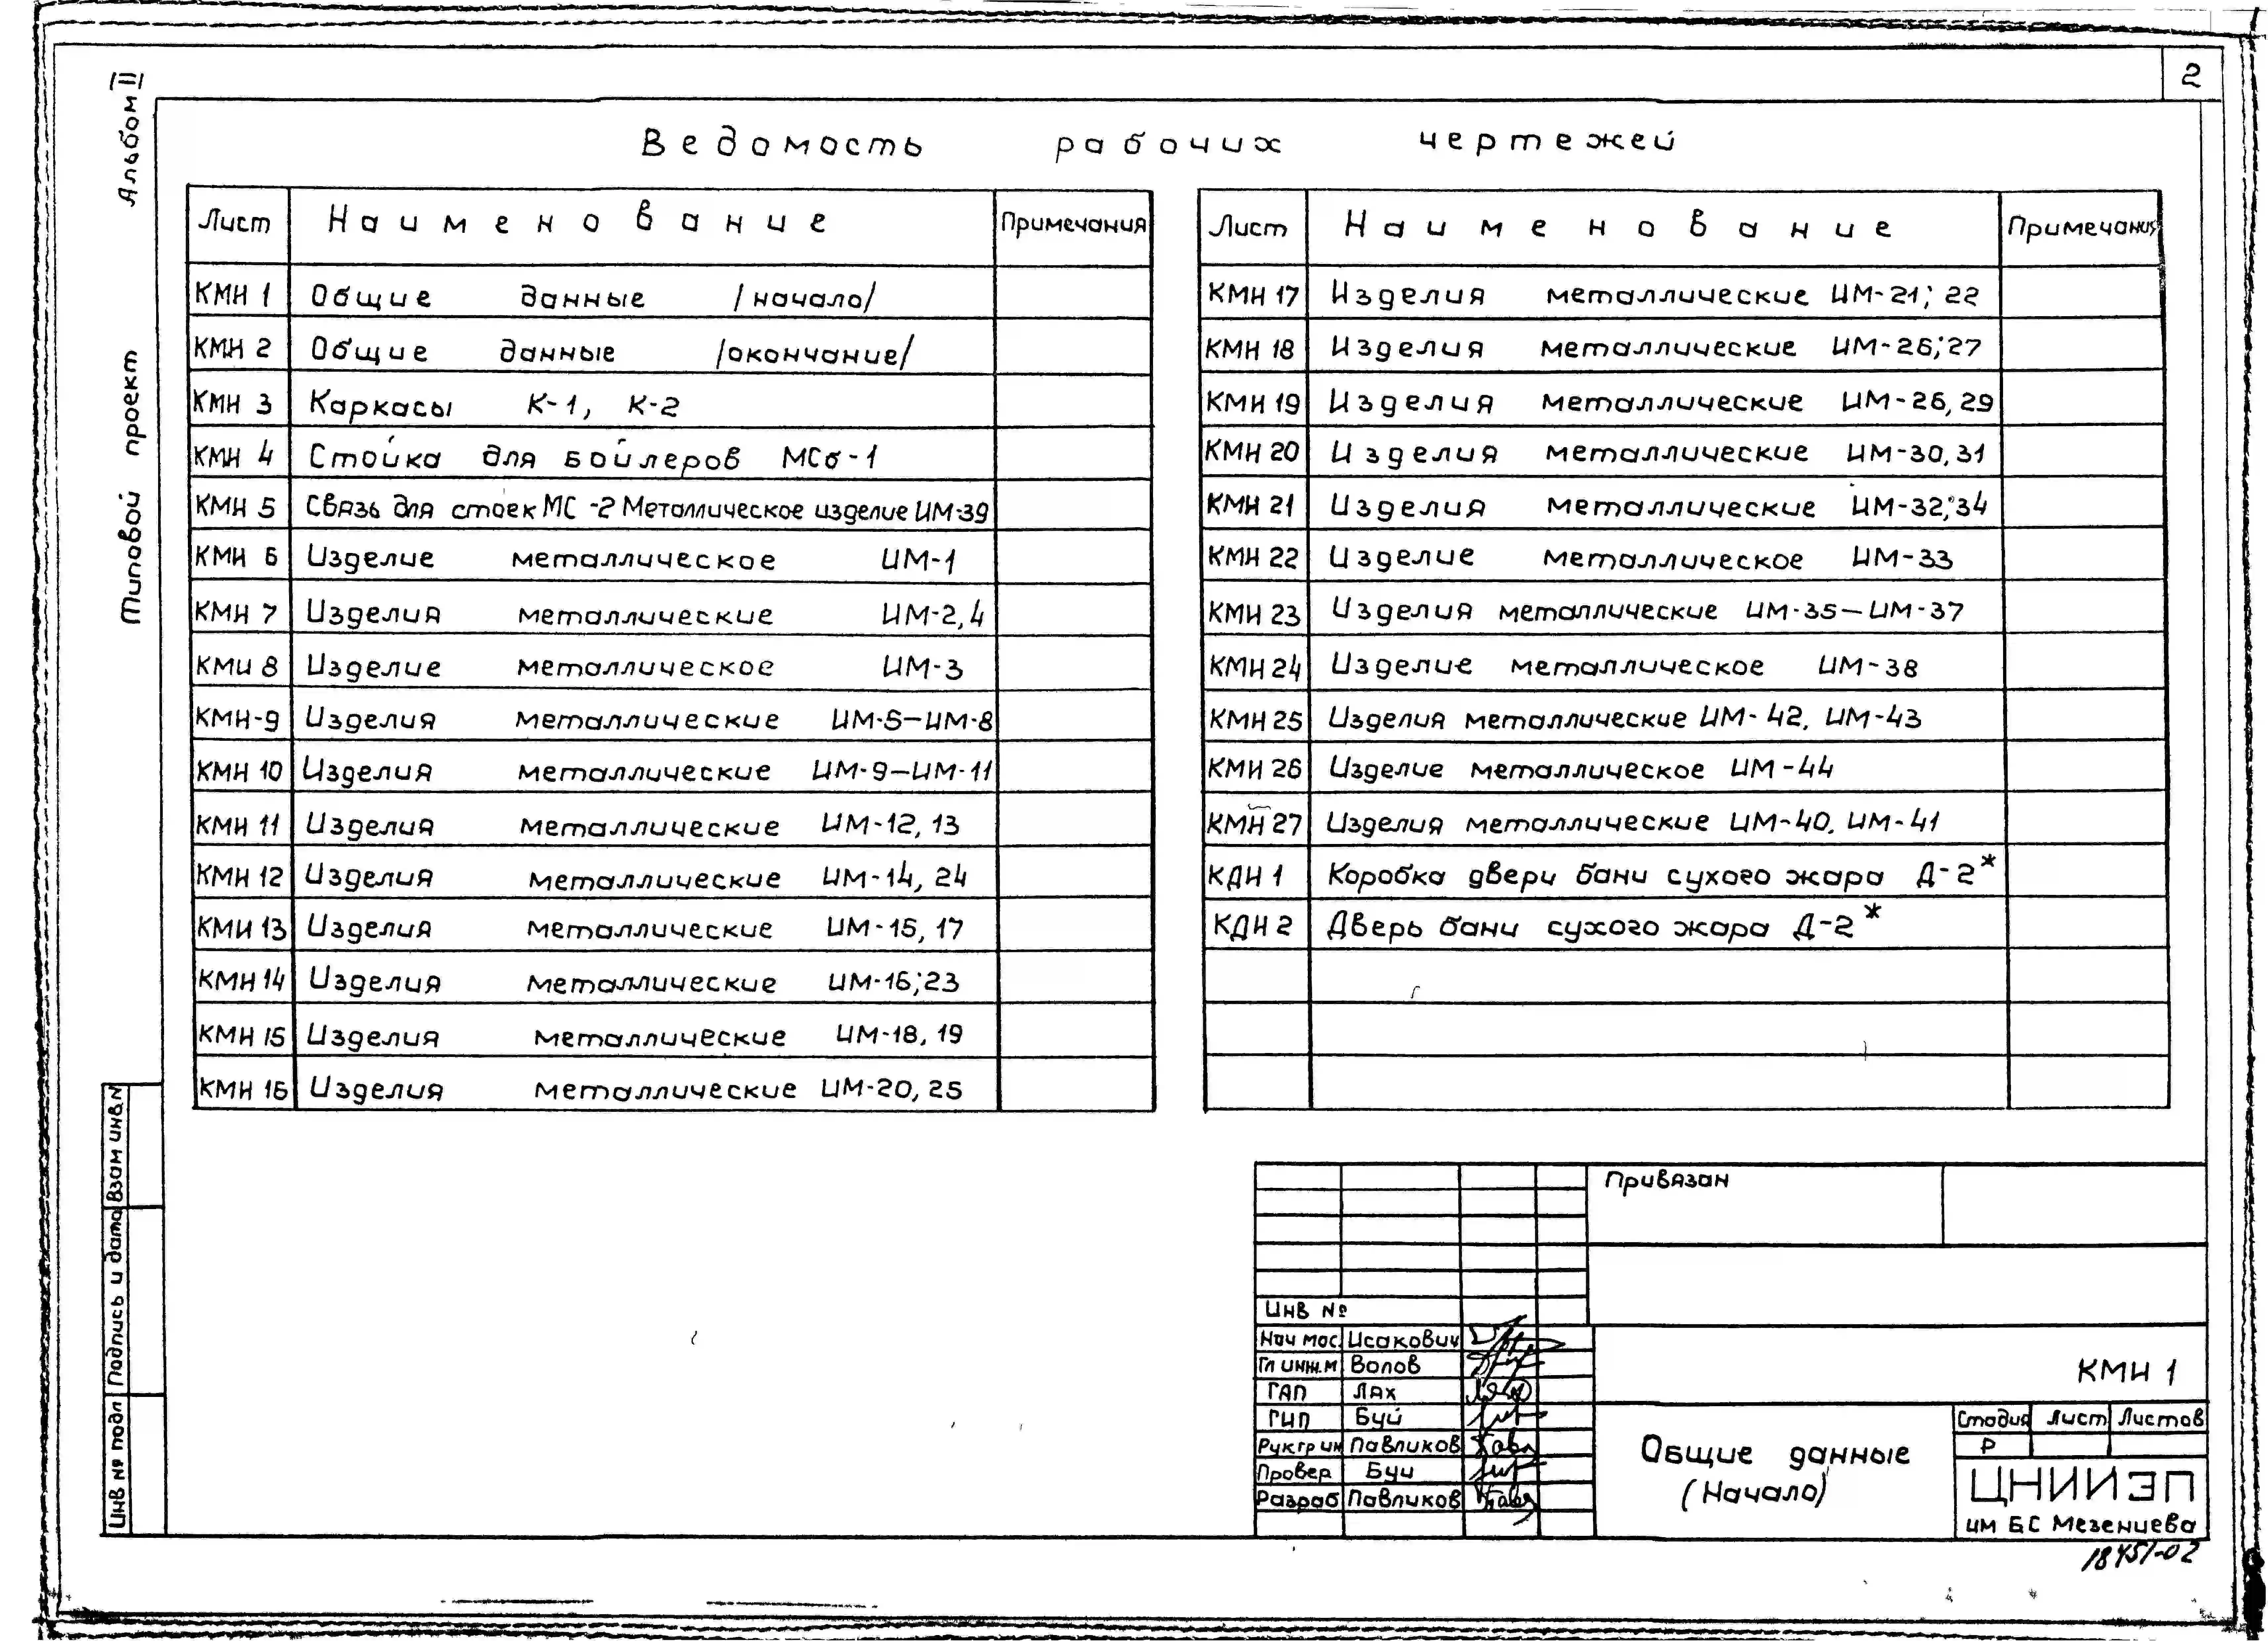 2
Альбом II
Типовой проект
Ведомость рабочих чертежей
Лист Наименование Примечания
КМН 1 Общие данные /начало/
КМН 2 Общие данные /окончание/
КМН 3 Каркасы К-1, К-2
КМН 4 Стойка для бойлеров МСб-1
КМН 5 Связь для стоек МС-2 Металлическое изделие ИМ-39
КМН 6 Изделие металлическое ИМ-1
КМН 7 Изделия металлические ИМ-2,4
КМН 8 Изделие металлическое ИМ-3
КМН-9 Изделия металлические ИМ-5—ИМ-8
КМН 10 Изделия металлические ИМ-9—ИМ-11
КМН 11 Изделия металлические ИМ-12, 13
КМН 12 Изделия металлические ИМ-14, 24
КМН 13 Изделия металлические ИМ-15, 17
КМН 14 Изделия металлические ИМ-16; 23
КМН 15 Изделия металлические ИМ-18, 19
КМН 16 Изделия металлические ИМ-20, 25
Лист Наименование Примечания
КМН 17 Изделия металлические ИМ-21; 22
КМН 18 Изделия металлические ИМ-26; 27
КМН 19 Изделия металлические ИМ-26, 29
КМН 20 Изделия металлические ИМ-30, 31
КМН 21 Изделия металлические ИМ-32; 34
КМН 22 Изделие металлическое ИМ-33
КМН 23 Изделия металлические ИМ-35—ИМ-37
КМН 24 Изделие металлическое ИМ-38
КМН 25 Изделия металлические ИМ-42, ИМ-43
КМН 26 Изделие металлическое ИМ-44
КМН 27 Изделия металлические ИМ-40, ИМ-41
КДН 1 Коробка двери бани сухого жара Д-2*
КДН 2 Дверь бани сухого жара Д-2*
Взам инв N
Подпись и дата
Инв № подл
Привязан
Инв №
Нач мас. Исакович
Гл инж.м Волов
ГАП Лях
ГИП Буй
Рук.гр ин Павликов
Провер Буй
Разраб Павликов
КМН 1
Общие данные
(Начало)
Стадия Лист Листов
Р
ЦНИИЭП
им Б С Мезенцева
18451-02